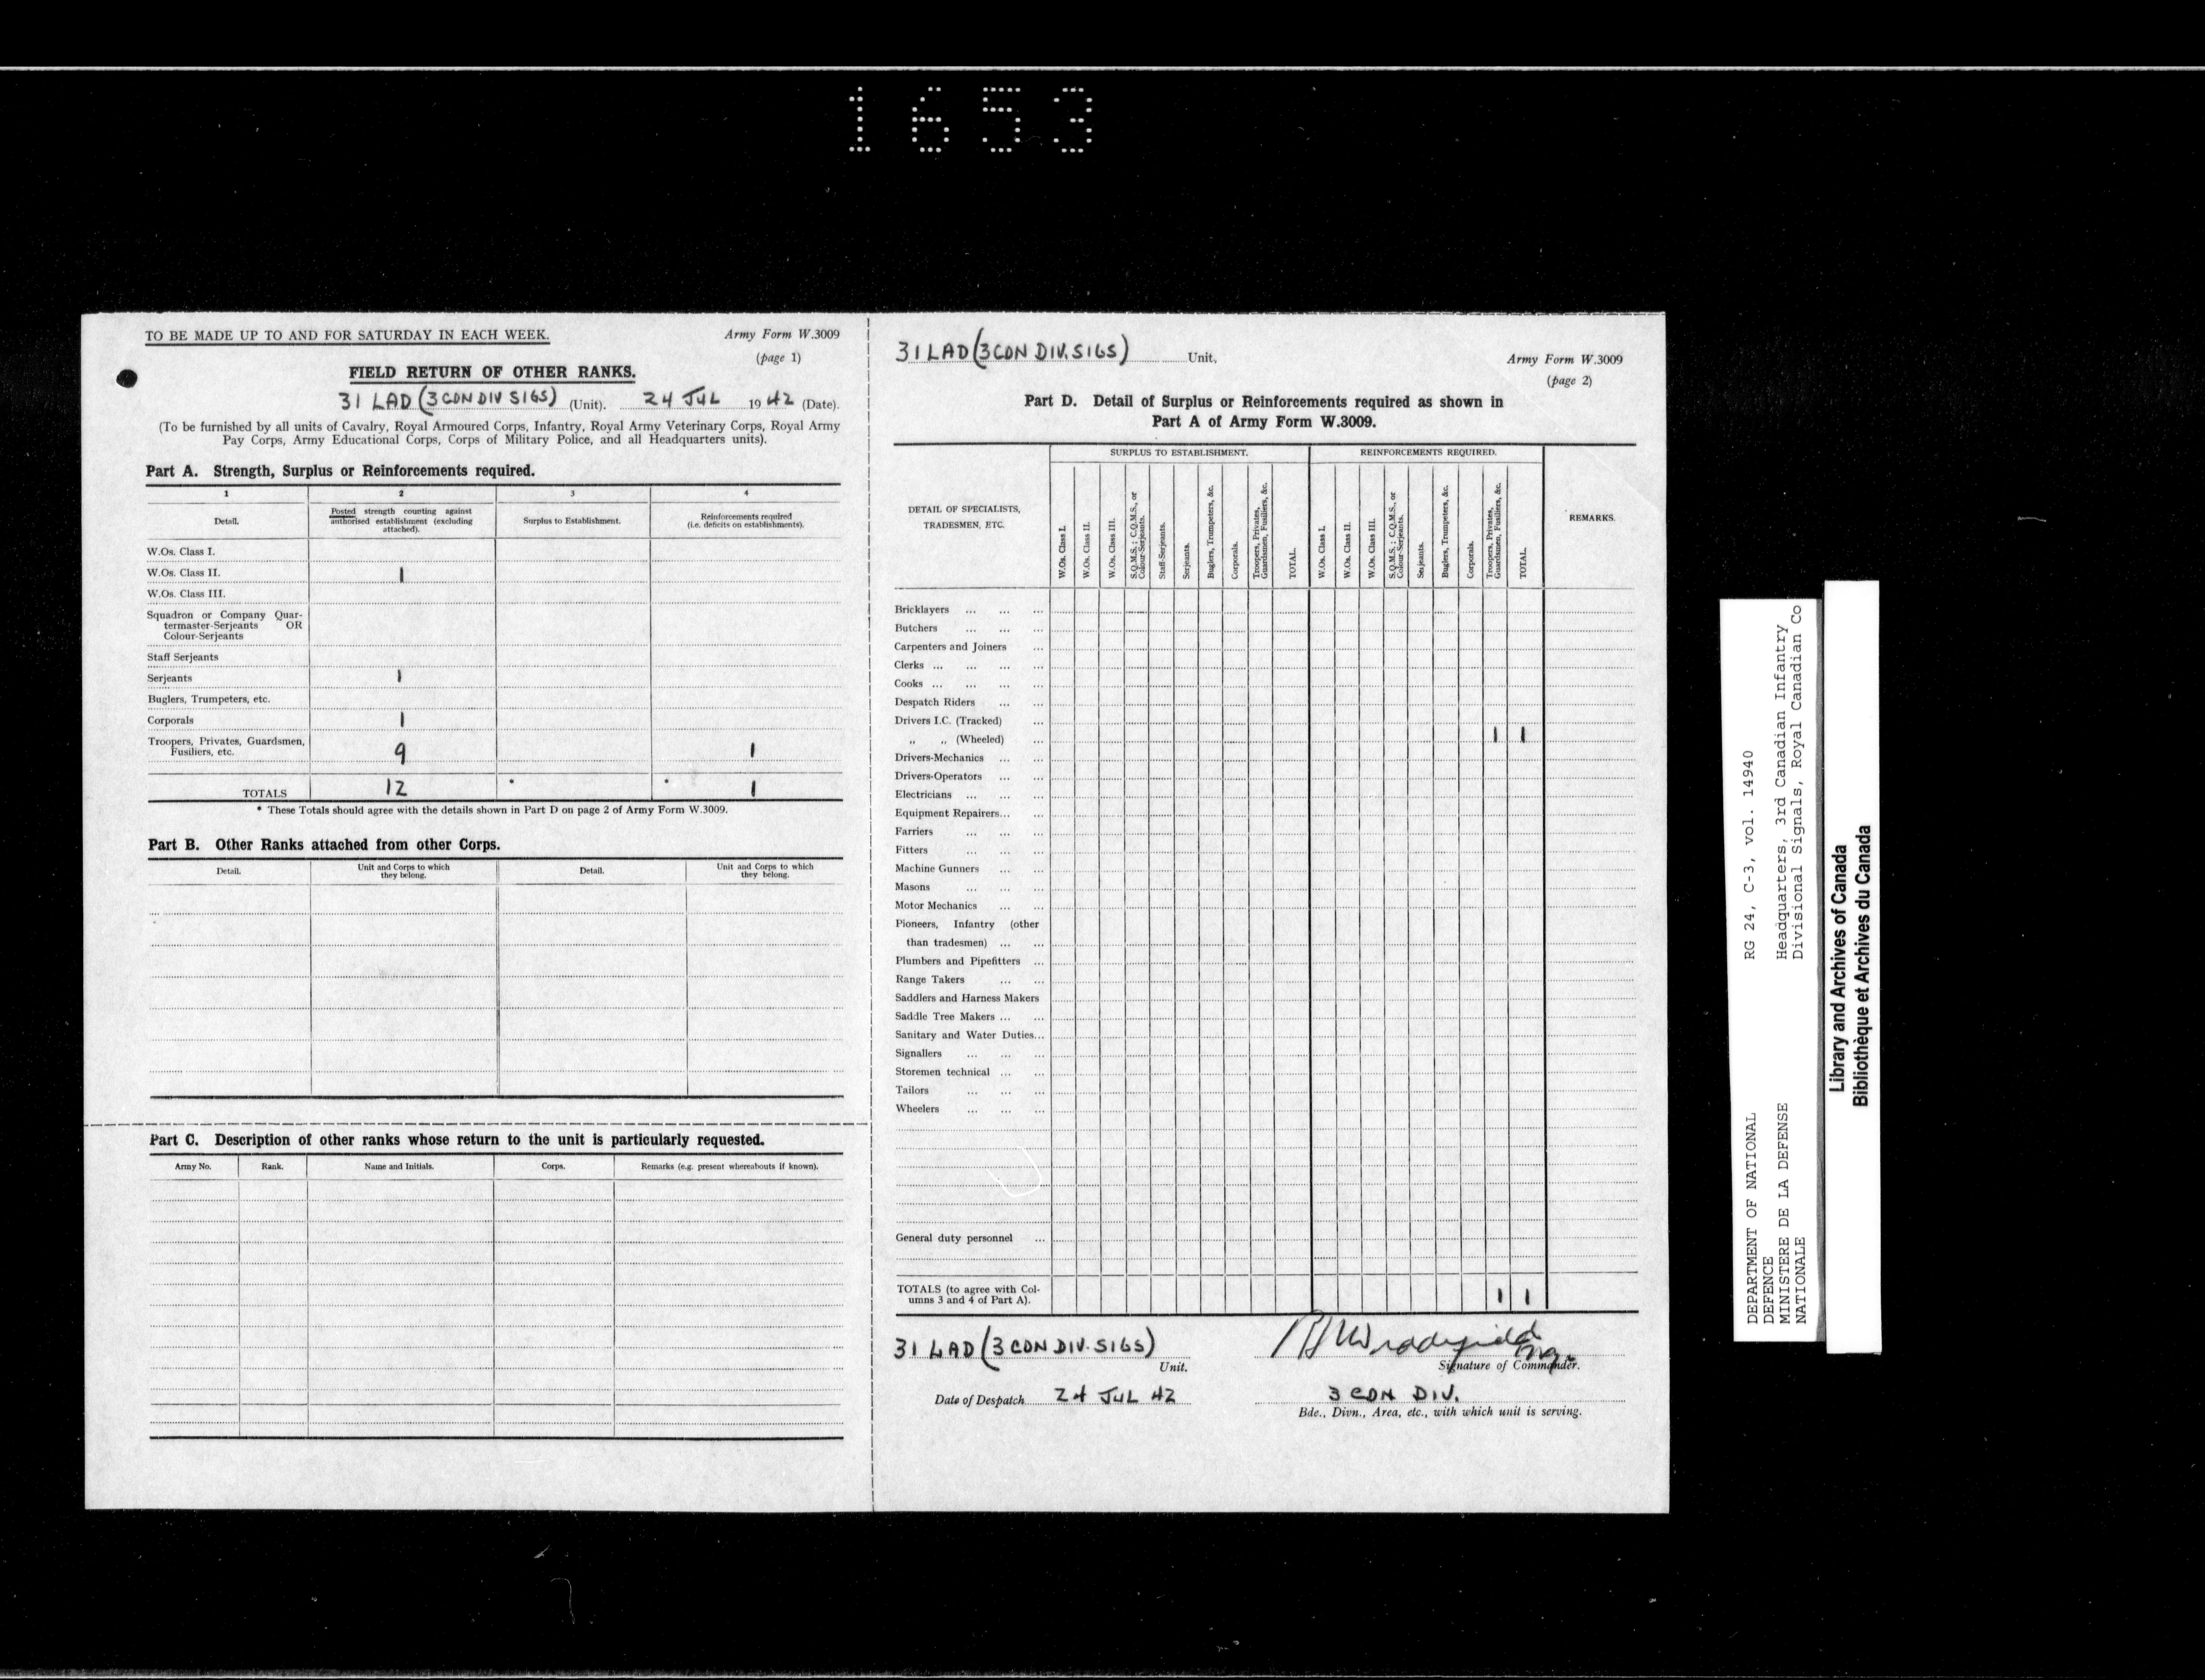 1653
TO BE MADE UP TO AND FOR SATURDAY IN EACH WEEK.
Army Form W.3009
(page 1)
FIELD RETURN OF OTHER RANKS.
31 LAD (3 CDN DIV SIGS) (Unit). 24 JUL 1942 (Date).
(To be furnished by all units of Cavalry, Royal Armoured Corps, Infantry, Royal Army Veterinary Corps, Royal Army
Pay Corps, Army Educational Corps, Corps of Military Police, and all Headquarters units).
Part A. Strength, Surplus or Reinforcements required.
1 2 3 4
Detail.
Posted strength counting against
authorised establishment (excluding
attached).
Surplus to Establishment.
Reinforcements required
(i.e. deficits on establishments).
W.Os. Class I.
W.Os. Class II. 1
W.Os. Class III.
Squadron or Company Quar-
termaster-Serjeants OR
Colour-Serjeants
Staff Serjeants
Serjeants 1
Buglers, Trumpeters, etc.
Corporals 1
Troopers, Privates, Guardsmen,
Fusiliers, etc. 9 1
TOTALS 12 * * 1
* These Totals should agree with the details shown in Part D on page 2 of Army Form W.3009.
Part B. Other Ranks attached from other Corps.
Detail.
Unit and Corps to which
they belong.
Detail.
Unit and Corps to which
they belong.
Part C. Description of other ranks whose return to the unit is particularly requested.
Army No. Rank. Name and Initials. Corps. Remarks (e.g. present whereabouts if known).
31 LAD (3 CDN DIV. SIGS) Unit,
Army Form W.3009
(page 2)
Part D. Detail of Surplus or Reinforcements required as shown in
Part A of Army Form W.3009.
DETAIL OF SPECIALISTS,
TRADESMEN, ETC.
SURPLUS TO ESTABLISHMENT.
W.Os. Class I.
W.Os. Class II.
W.Os. Class III.
S.Q.M.S.; C.Q.M.S., or
Colour-Serjeants.
Staff-Serjeants.
Serjeants.
Buglers, Trumpeters, &c.
Corporals.
Troopers, Privates,
Guardsmen, Fusiliers, &c.
TOTAL.
REINFORCEMENTS REQUIRED.
W.Os. Class I.
W.Os. Class II.
W.Os. Class III.
S.Q.M.S.; C.Q.M.S., or
Colour-Serjeants.
Serjeants.
Buglers, Trumpeters, &c.
Corporals.
Troopers, Privates,
Guardsmen, Fusiliers, &c.
TOTAL.
REMARKS.
Bricklayers ... ... ...
Butchers ... ... ...
Carpenters and Joiners ...
Clerks ... ... ... ...
Cooks ... ... ... ...
Despatch Riders ... ...
Drivers I.C. (Tracked) ...
,, ,, (Wheeled) ... 1 1
Drivers-Mechanics ... ...
Drivers-Operators ... ...
Electricians ... ... ...
Equipment Repairers... ...
Farriers ... ... ...
Fitters ... ... ...
Machine Gunners ... ...
Masons ... ... ...
Motor Mechanics ... ...
Pioneers, Infantry (other
than tradesmen) ... ...
Plumbers and Pipefitters ...
Range Takers ... ...
Saddlers and Harness Makers
Saddle Tree Makers ... ...
Sanitary and Water Duties...
Signallers ... ... ...
Storemen technical ... ...
Tailors ... ... ...
Wheelers ... ... ...
General duty personnel ...
TOTALS (to agree with Col-
umns 3 and 4 of Part A). 1 1
31 LAD (3 CDN DIV. SIGS)
Unit.
Signature of Commander.
Date of Despatch 24 JUL 42
3 CDN DIV.
Bde., Divn., Area, etc., with which unit is serving.
DEPARTMENT OF NATIONAL
DEFENCE
MINISTERE DE LA DEFENSE
NATIONALE
RG 24, C-3, vol. 14940
Headquarters, 3rd Canadian Infantry
Divisional Signals, Royal Canadian Co
Library and Archives of Canada
Bibliothèque et Archives du Canada